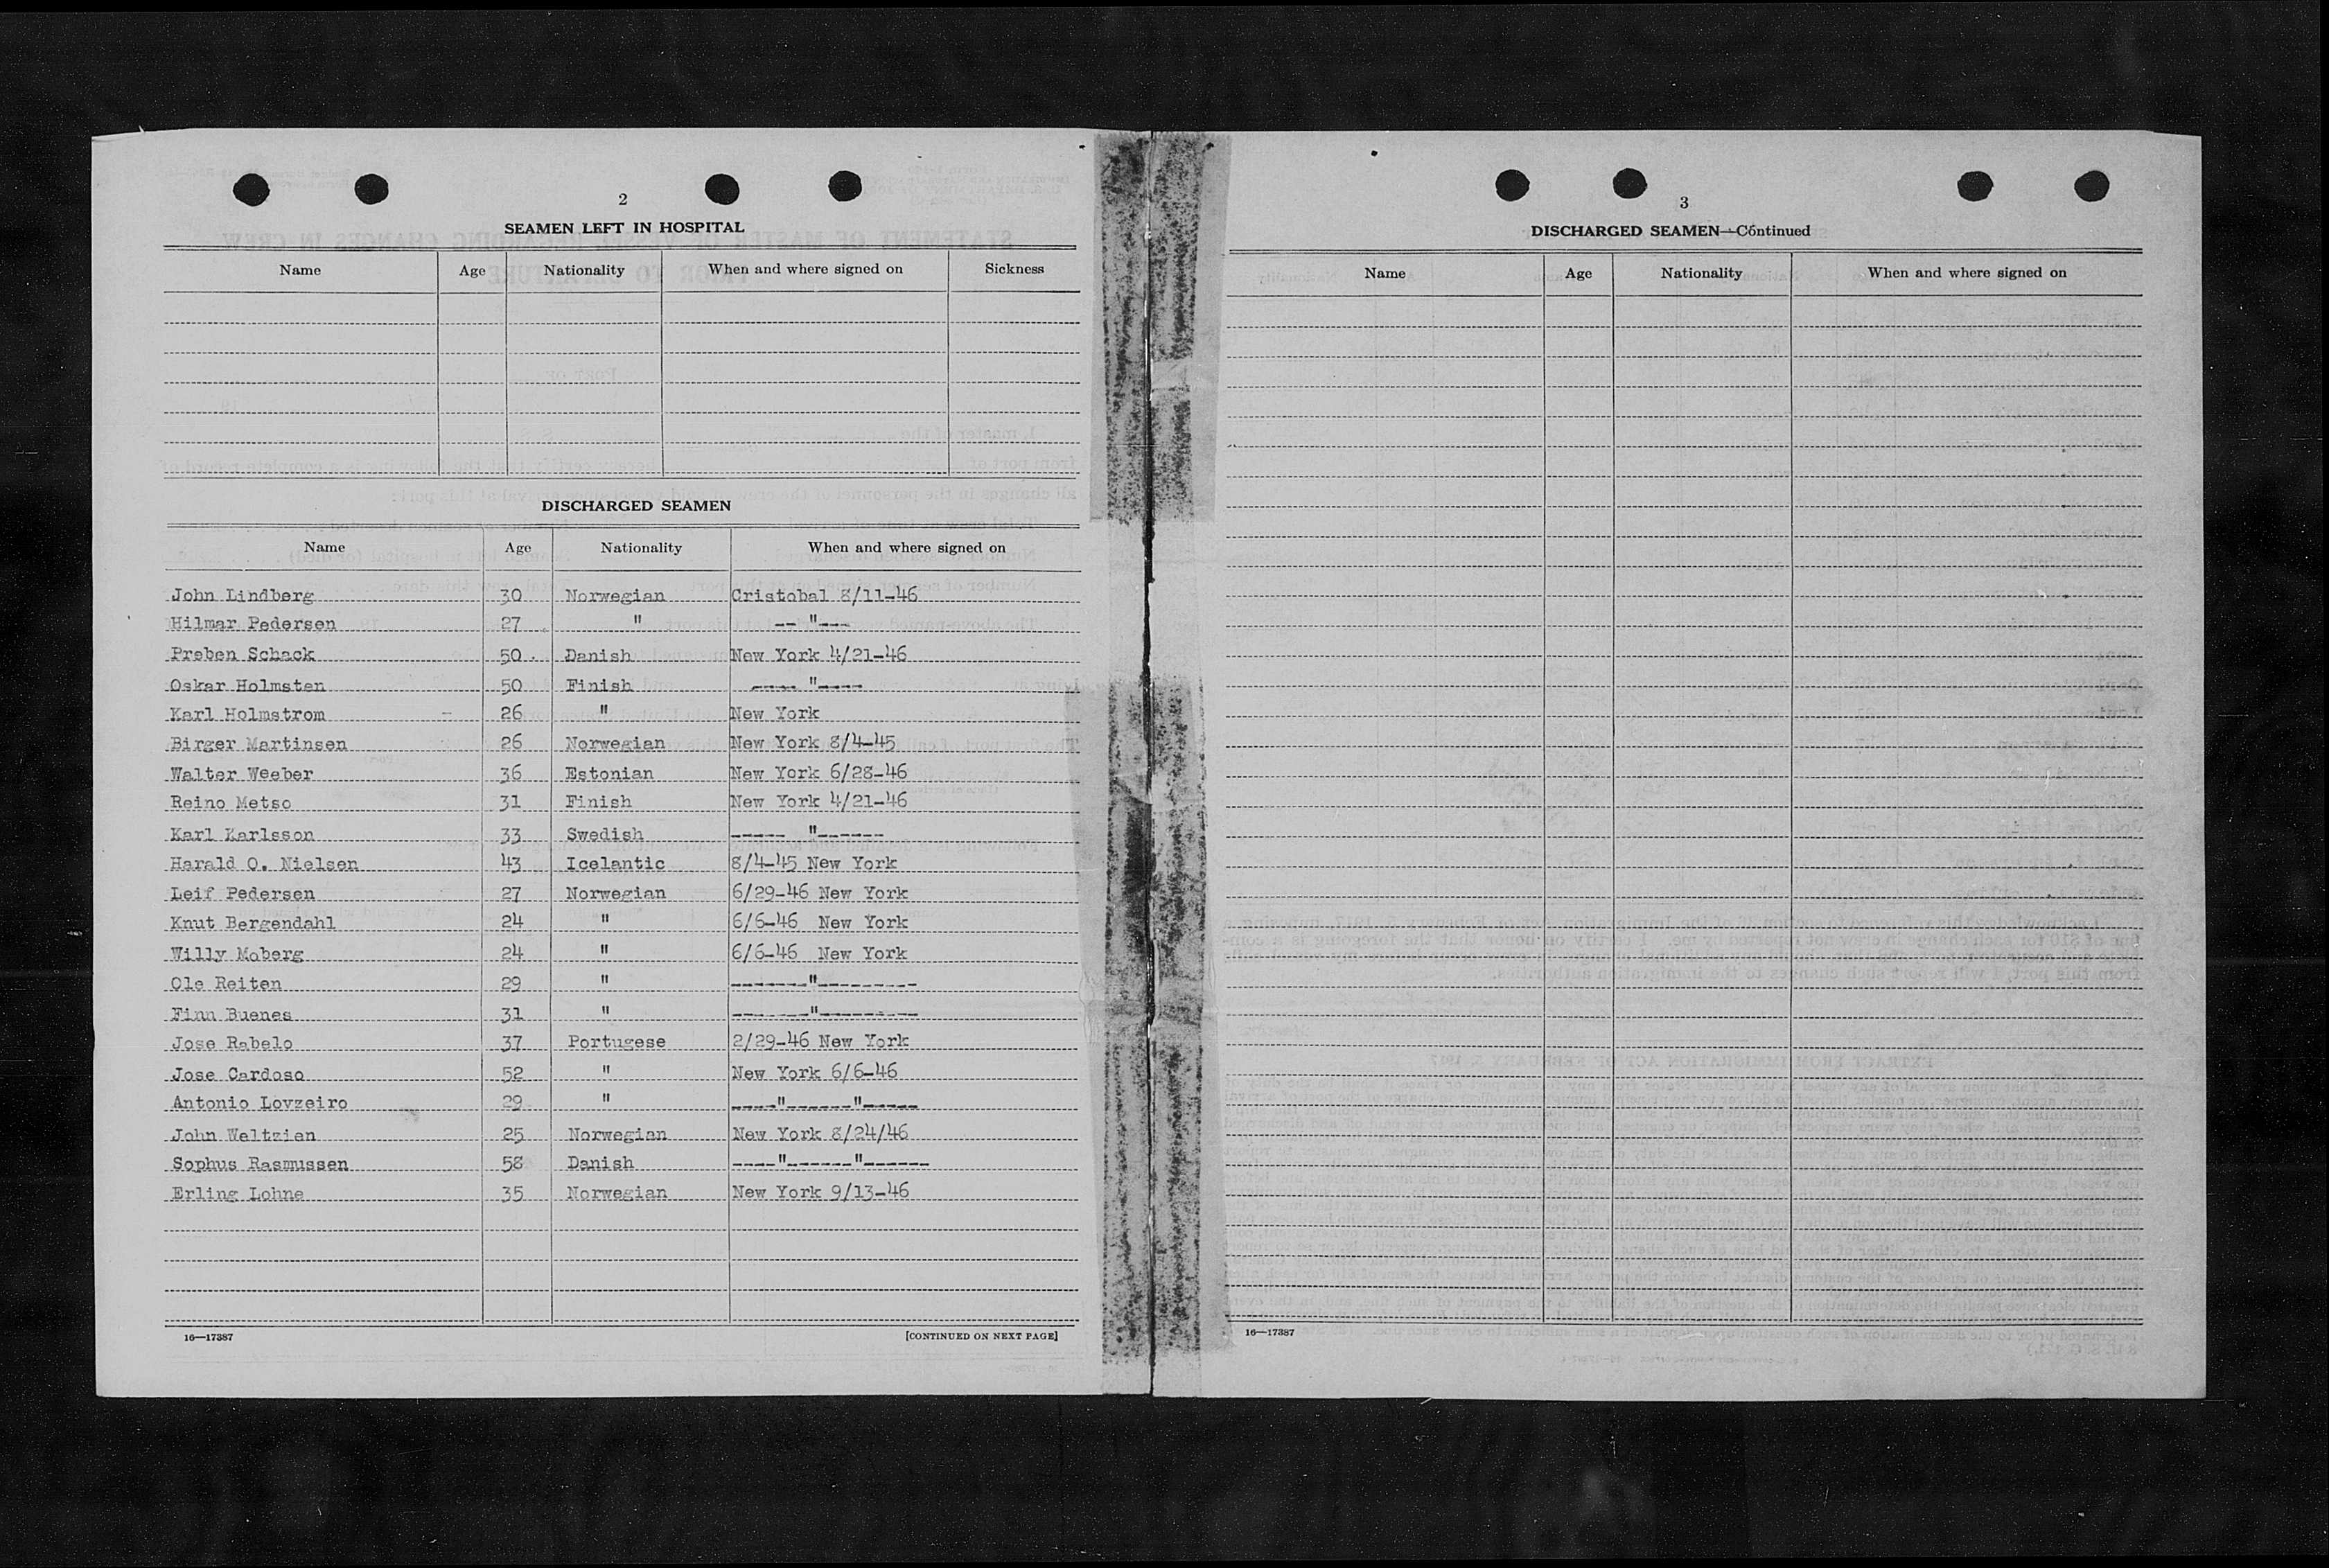 2
SEAMEN LEFT IN HOSPITAL
Name Age Nationality When and where signed on Sickness
DISCHARGED SEAMEN
Name Age Nationality When and where signed on
John Lindberg 30 Norwegian Cristobal 8/11-46
Hilmar Pedersen 27 " -- "---
Preben Schack 50 Danish New York 4/21-46
Oskar Holmsten 50 Finish ---- "----
Karl Holmstrom 26 " New York
Birger Martinsen 26 Norwegian New York 8/4-45
Walter Weeber 36 Estonian New York 6/28-46
Reino Metso 31 Finish New York 4/21-46
Karl Karlsson 33 Swedish ----- "------
Harald O. Nielsen 43 Icelantic 8/4-45 New York
Leif Pedersen 27 Norwegian 6/29-46 New York
Knut Bergendahl 24 " 6/6-46 New York
Willy Moberg 24 " 6/6-46 New York
Ole Reiten 29 " -------"---------
Finn Buenes 31 " -------"---------
Jose Rabelo 37 Portugese 2/29-46 New York
Jose Cardoso 52 " New York 6/6-46
Antonio Lovzeiro 29 " ----"------"-----
John Weltzien 25 Norwegian New York 8/24/46
Sophus Rasmussen 58 Danish ----"------"------
Erling Lohne 35 Norwegian New York 9/13-46
16—17387 [CONTINUED ON NEXT PAGE]
3
DISCHARGED SEAMEN—Continued
Name Age Nationality When and where signed on
16—17387